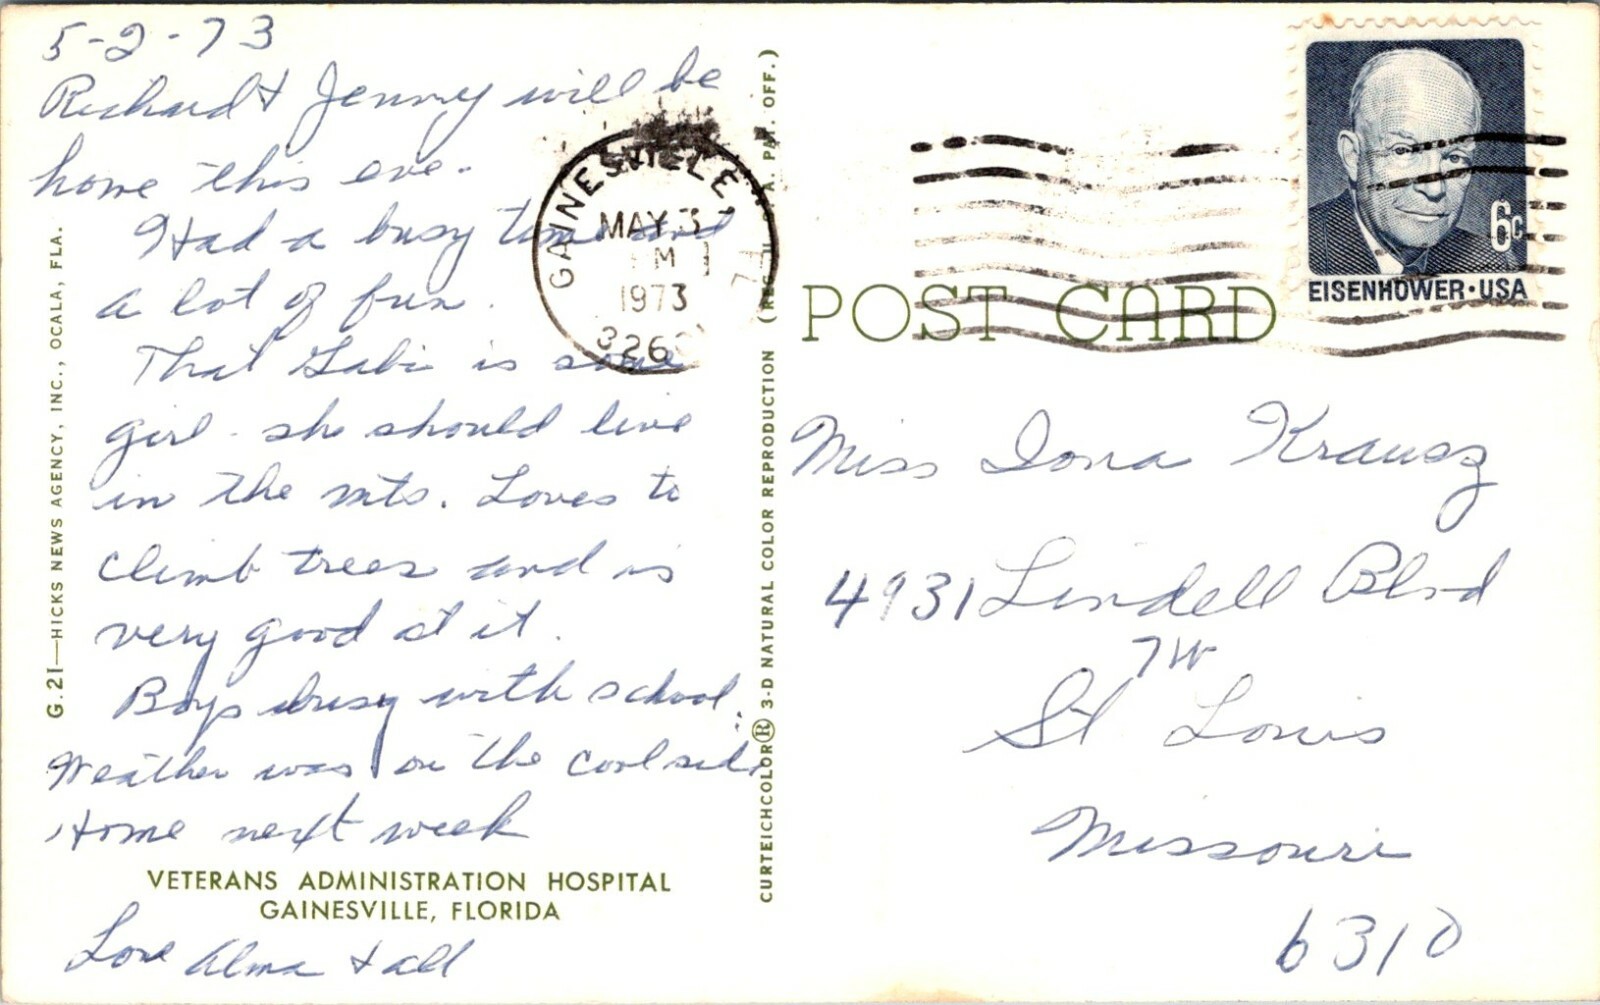 5-2-73
Richard & Jenny will be
home this eve.
Had a busy time and
a lot of fun.
That Gabi is some
girl - she should live
in the mts. Loves to
climb trees and is
very good at it.
Boys busy with school.
Weather was on the cool side
Home next week
VETERANS ADMINISTRATION HOSPITAL
GAINESVILLE, FLORIDA
Love Alma & all
G.21—HICKS NEWS AGENCY, INC., OCALA, FLA.
CURTEICHCOLOR® 3-D NATURAL COLOR REPRODUCTION (REG. U.S.A. PAT. OFF.)
GAINESVILLE,
MAY 3
PM
1973
326
6c
EISENHOWER·USA
POST CARD
Miss Iona Krausz
4931 Lindell Blvd
7W
St Louis
Missouri
6310